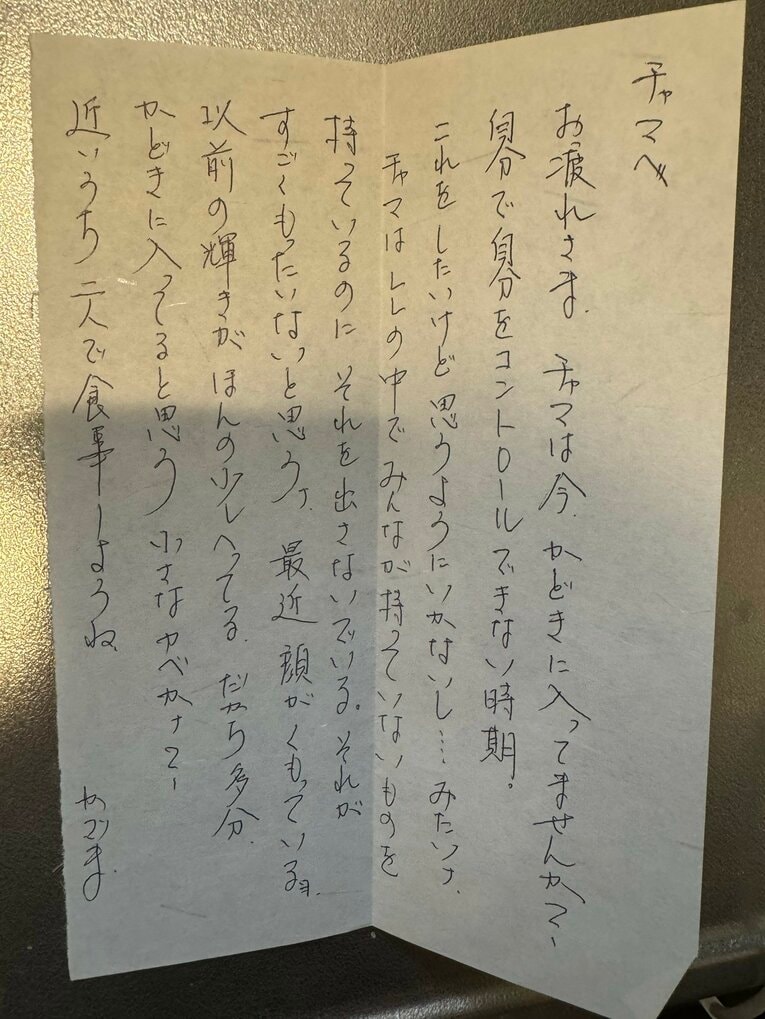 チャマへ
お疲れさま。チャマは今、かどきに入ってませんか?
自分で自分をコントロールできない時期。
これをしたいけど思うようにいかないし…みたいナ。
チャマはレレの中でみんなが持っていないものを
持っているのにそれを出さないでいる。それが
すごくもったいないっと思うナ。最近顔がくもっているヨ。
以前の輝きがほんの少しへってる。だから多分、
かどきに入ってると思う 小さなカベかナ?
近いうち二人で食事しようね。